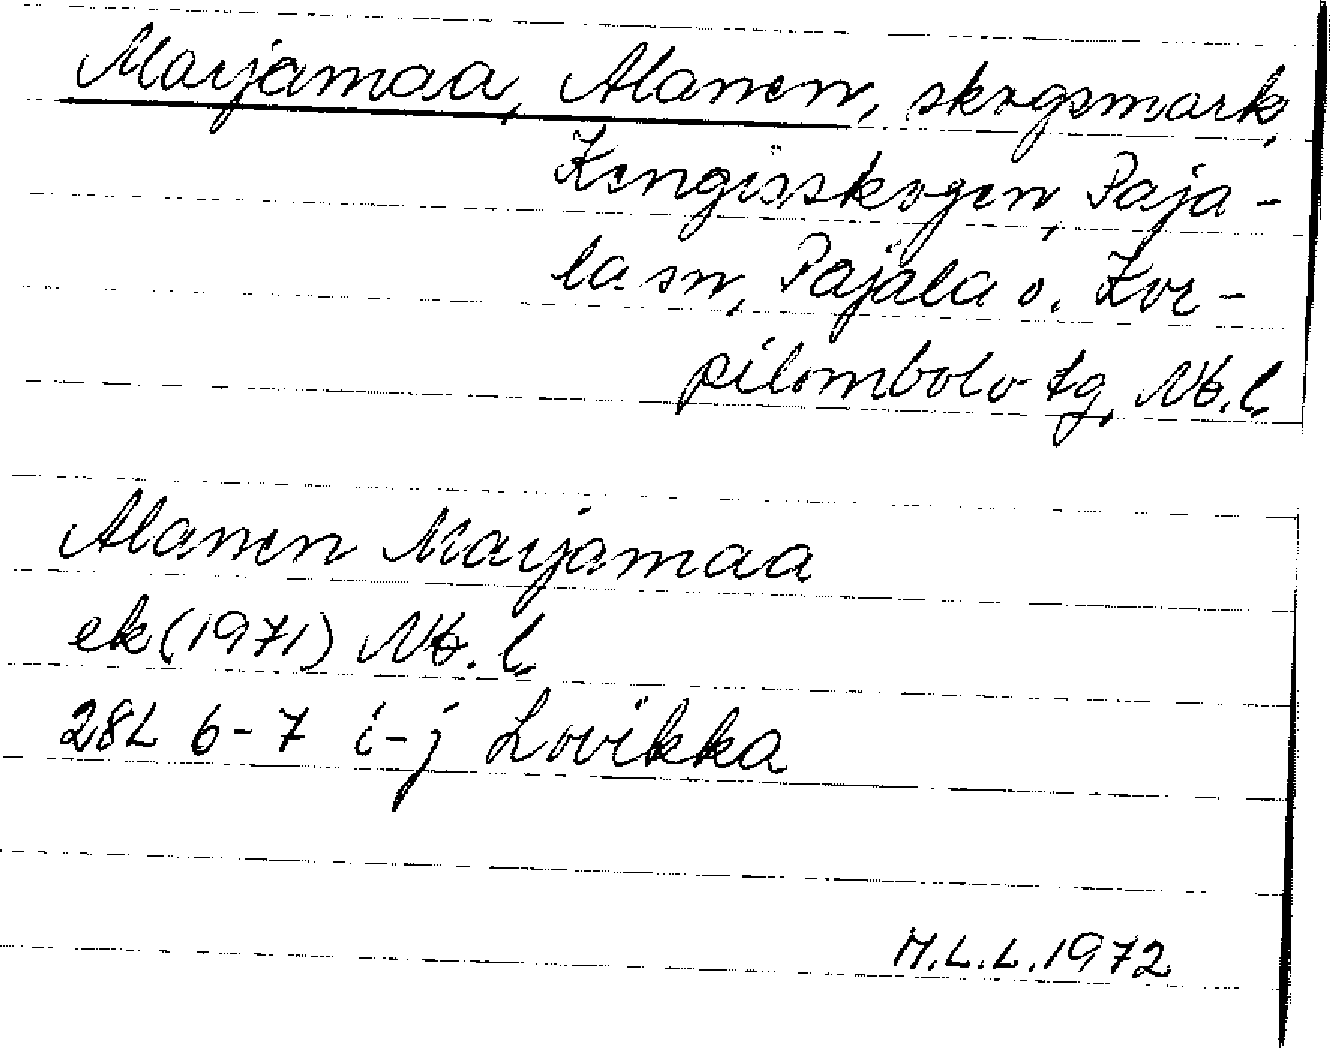 Marjamaa, Alanen, skogsmark,
Kengisskogen, Paja-
la sn, Pajala o. Kor-
pilombolo tg, Nb. l.
Alanen Marjamaa
ek (1971) Nb. l.
28L 6-7 i-j Lovikka
M.L.L. 1972